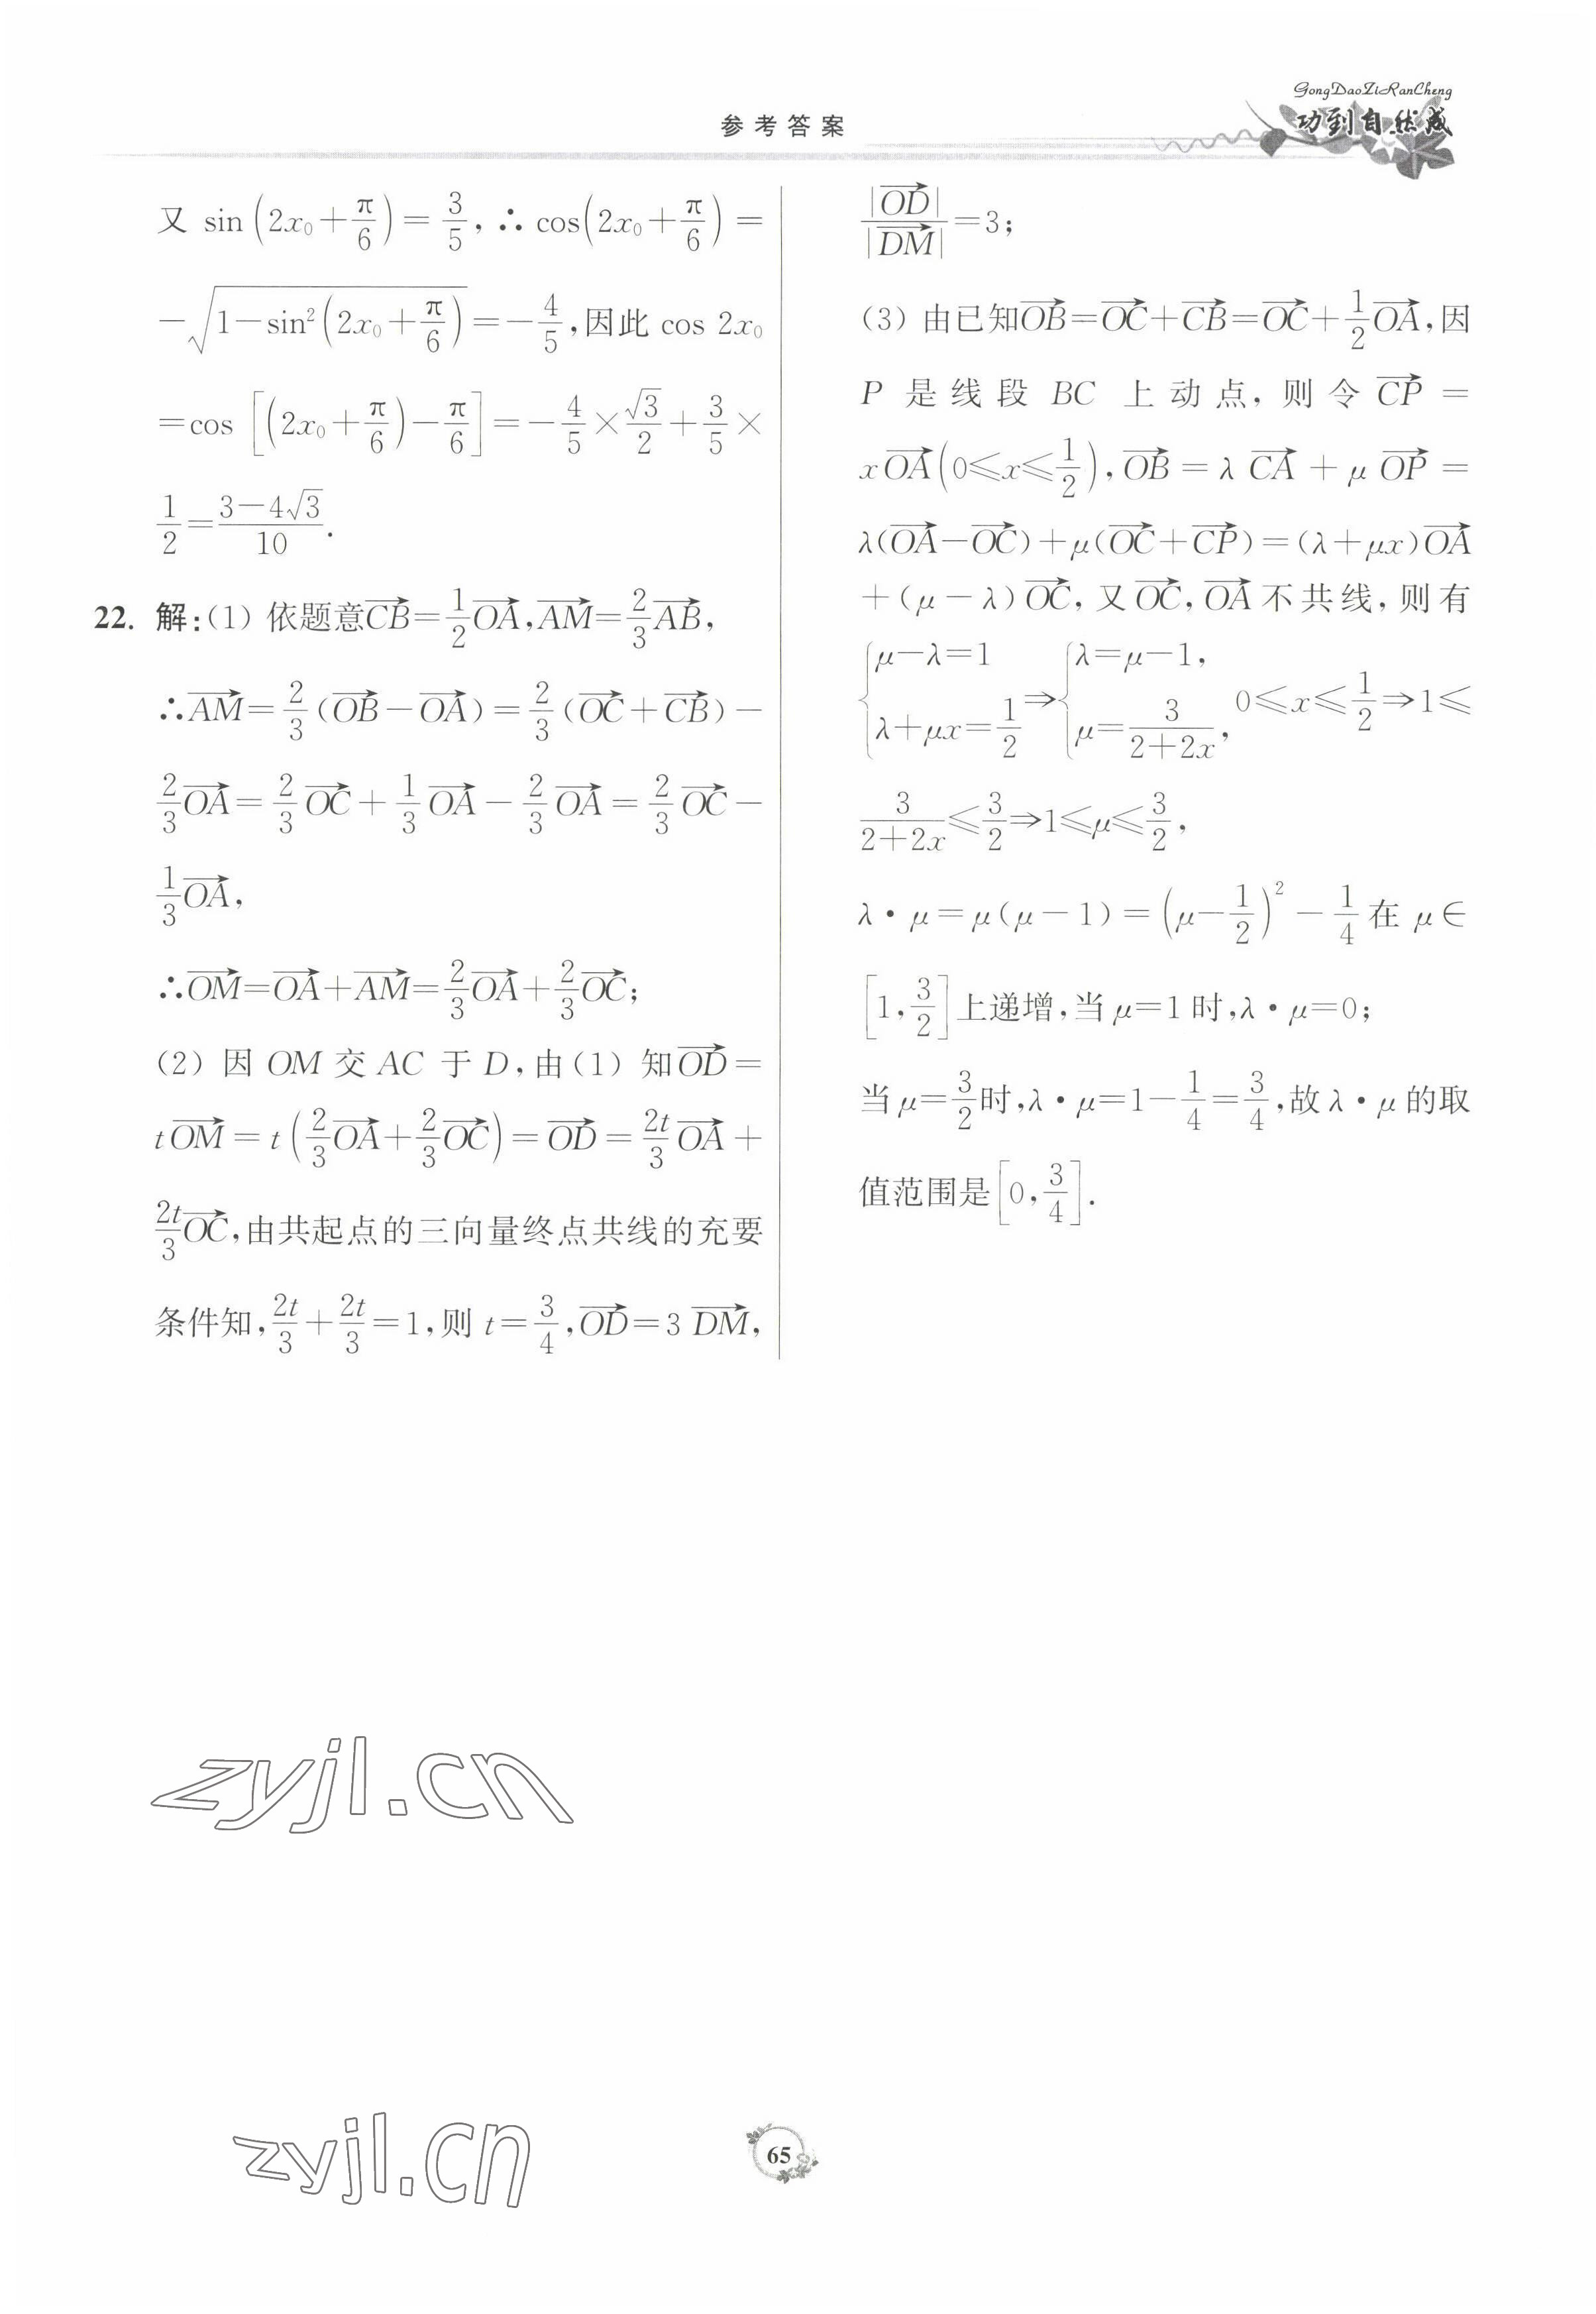 GongDaoZiRanCheng
功到自然成
参考答案
又 sin(2x₀+π/6)=3/5,∴cos(2x₀+π/6)=
-√(1-sin²(2x₀+π/6))=-4/5,因此 cos 2x₀
=cos[(2x₀+π/6)-π/6]=-4/5×√3/2+3/5×
1/2=(3-4√3)/10.
22. 解:(1) 依题意CB→=1/2 OA→,AM→=2/3 AB→,
∴AM→=2/3(OB→-OA→)=2/3(OC→+CB→)-
2/3 OA→=2/3 OC→+1/3 OA→-2/3 OA→=2/3 OC→-
1/3 OA→,
∴OM→=OA→+AM→=2/3 OA→+2/3 OC→;
(2) 因 OM 交 AC 于 D,由(1) 知OD→=
tOM→=t(2/3 OA→+2/3 OC→)=OD→=2t/3 OA→+
2t/3 OC→,由共起点的三向量终点共线的充要
条件知,2t/3+2t/3=1,则 t=3/4,OD→=3 DM→,
|OD→|/|DM→|=3;
(3) 由已知OB→=OC→+CB→=OC→+1/2 OA→,因
P 是线段 BC 上动点,则令 CP→=
xOA→(0≤x≤1/2),OB→=λCA→+μOP→=
λ(OA→-OC→)+μ(OC→+CP→)=(λ+μx)OA→
+(μ-λ)OC→,又OC→,OA→不共线,则有
{μ-λ=1 λ+μx=1/2 ⇒ {λ=μ-1, μ=3/(2+2x), 0≤x≤1/2⇒1≤
3/(2+2x)≤3/2⇒1≤μ≤3/2,
λ·μ=μ(μ-1)=(μ-1/2)²-1/4在 μ∈
[1,3/2]上递增,当 μ=1 时,λ·μ=0;
当 μ=3/2时,λ·μ=1-1/4=3/4,故 λ·μ 的取
值范围是[0,3/4].
zyjl.cn
zyjl.cn
65